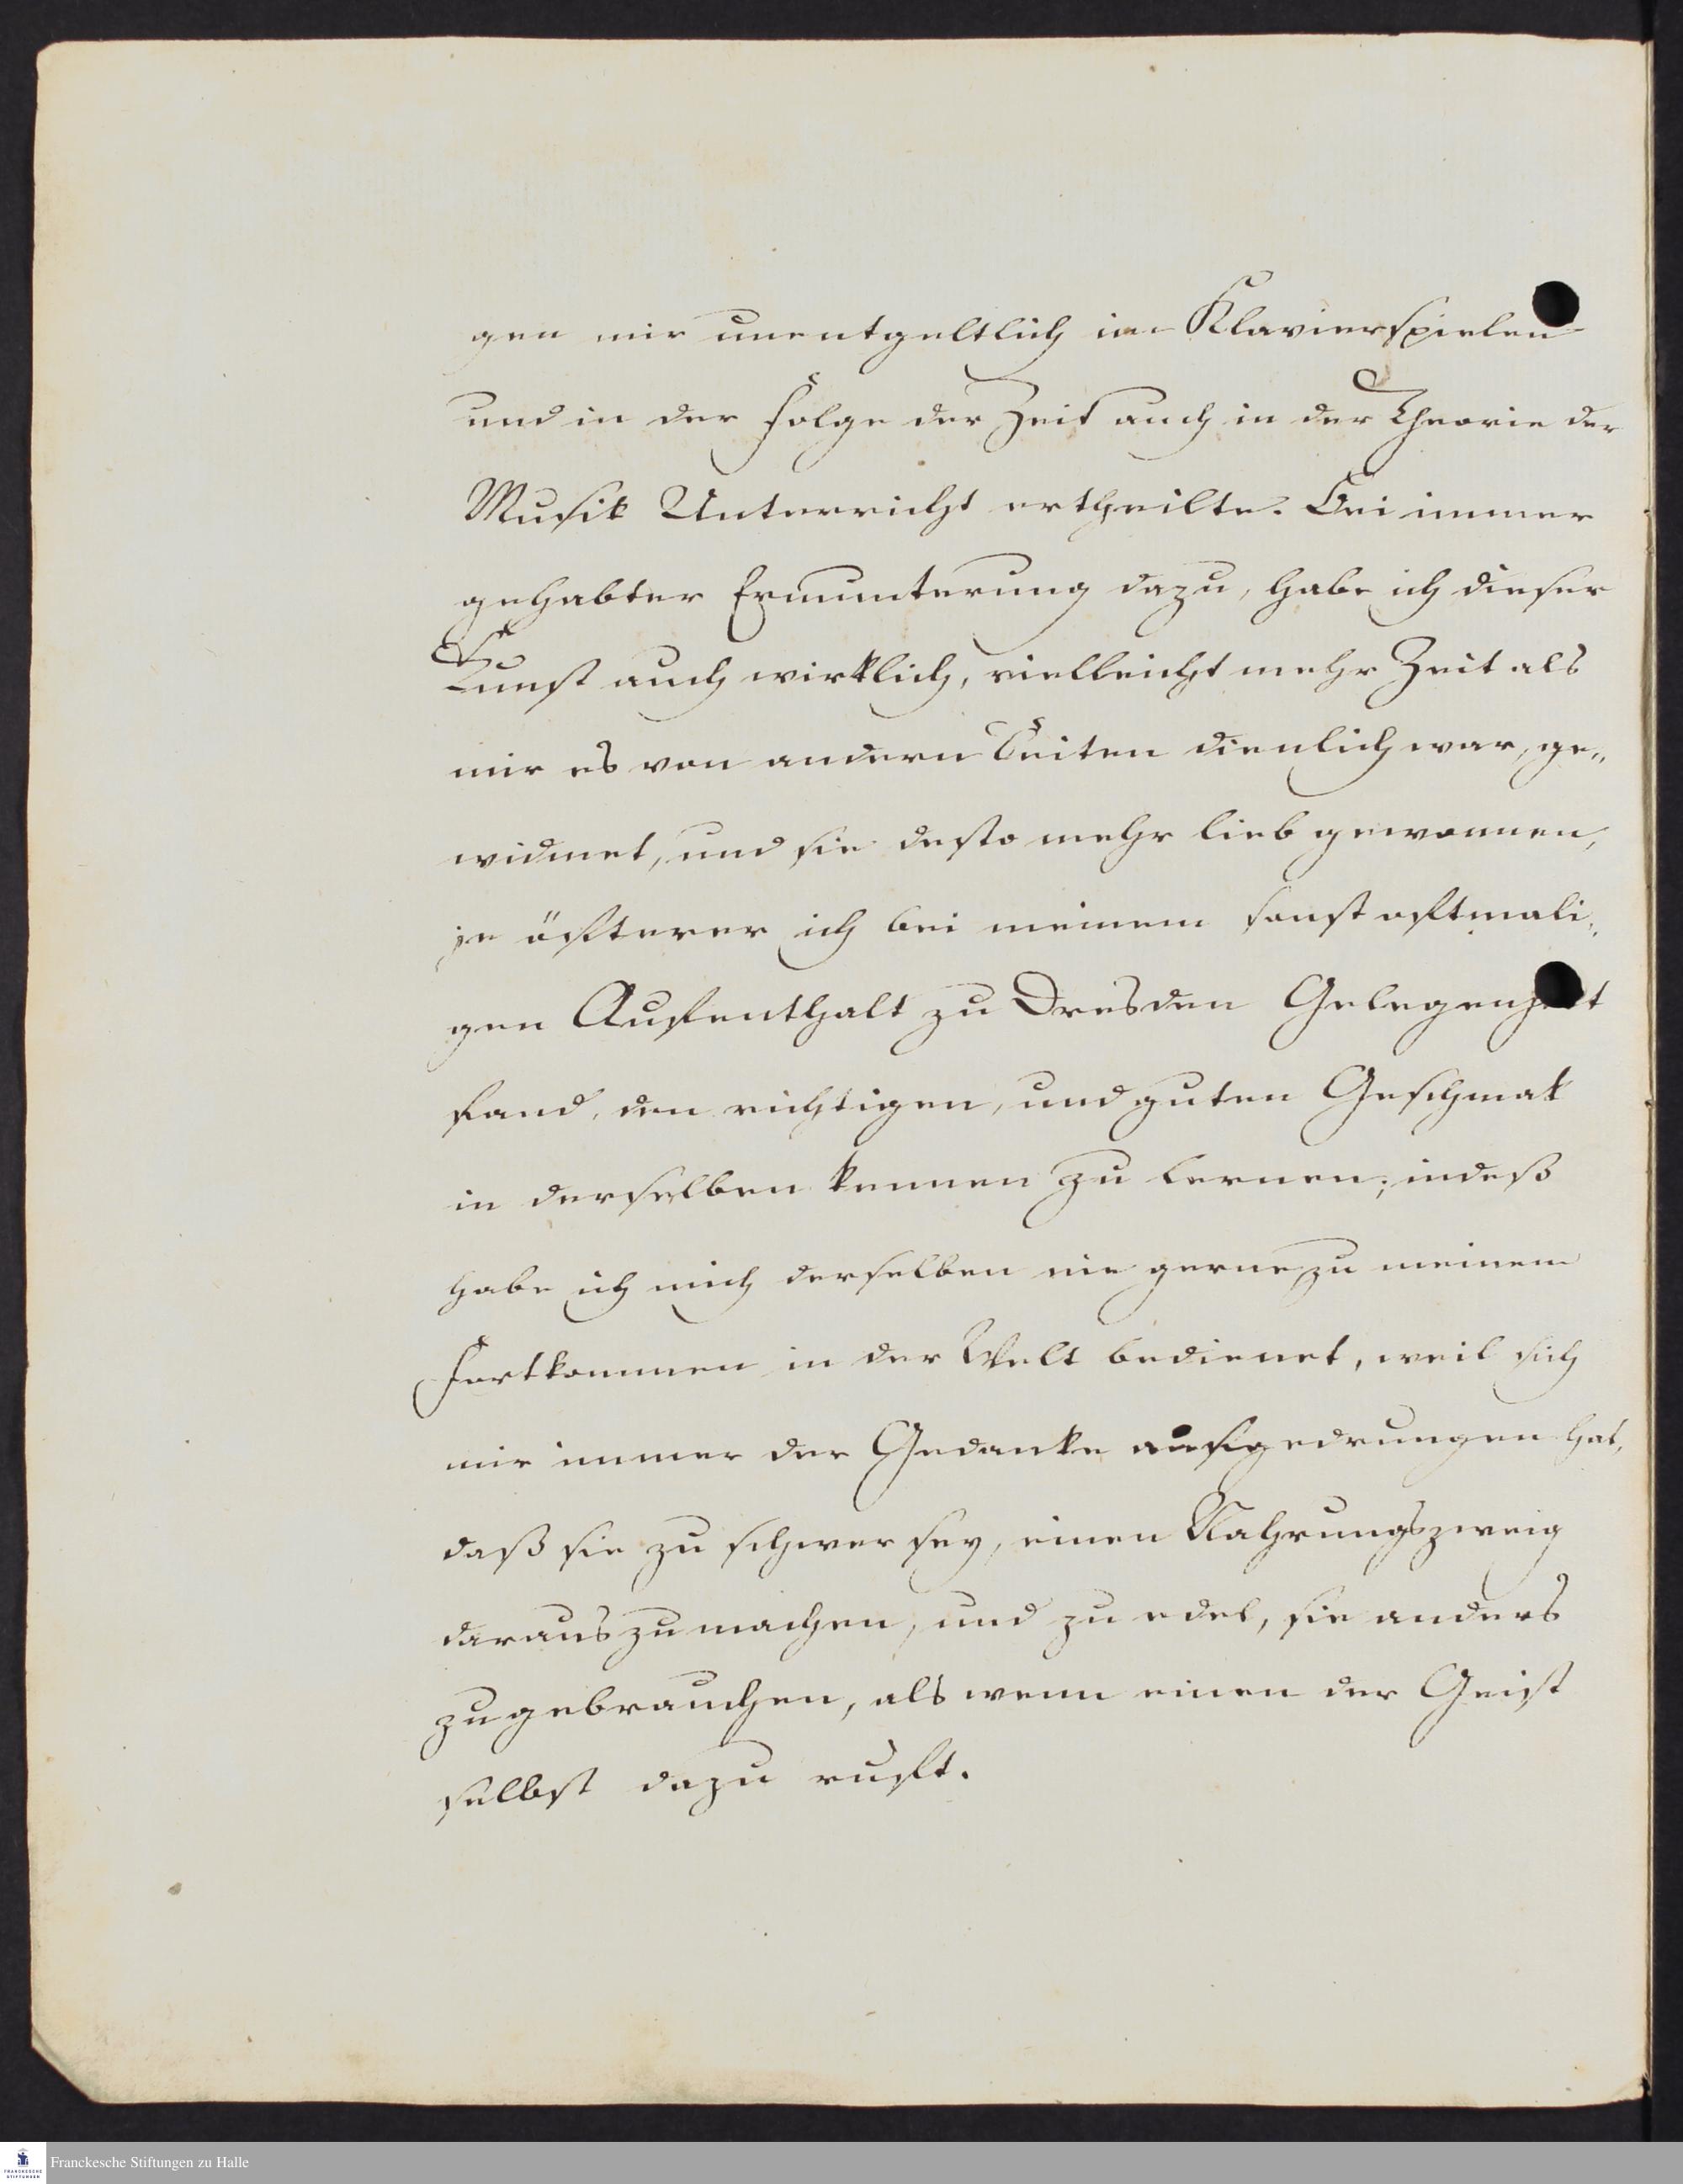 gen mir unentgeltlich im Klavierspielen
und in der Folge der Zeit auch in der Theorie der
Musik Unterricht ertheilte. Bei immer
gehabter Ermunterung dazu, habe ich dieser
Kunst auch wirklich, vielleicht mehr Zeit als
mir es von andern Seiten dienlich war, ge„
widmet, und sie desto mehr lieb gewonnen,
je öfterer ich bei meinem sonst oftmali„
gen Aufenthalt zu Dresden Gelegenheit
fand, den richtigen, und guten Geschmak
in derselben kennen zu lernen; indeß
habe ich mich derselben nie gerne zu meinem
Fortkommen in der Welt bedienet, weil sich
mir immer der Gedanke aufgedrungen hat,
daß sie zu schwer sey, einen Nahrungszweig
daraus zu machen, und zu edel, sie anders
zu gebrauchen, als wenn einen der Geist
selbst dazu ruft.
FRANCKESCHE
STIFTUNGEN
Franckesche Stiftungen zu Halle